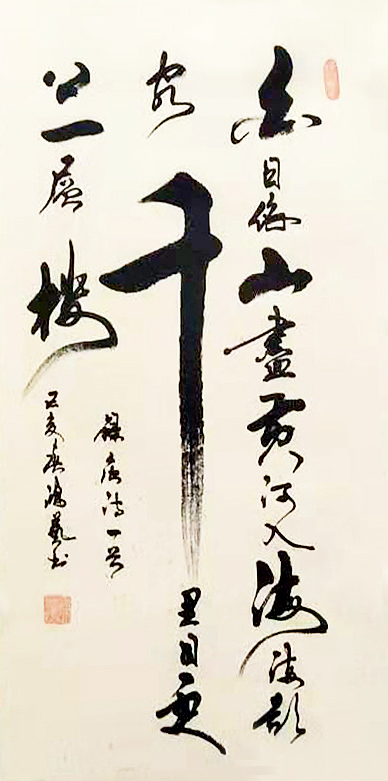 白日依山盡黃河入海流欲
窮千里目更
上一層樓
錄唐詩一首
己亥鴻藝書